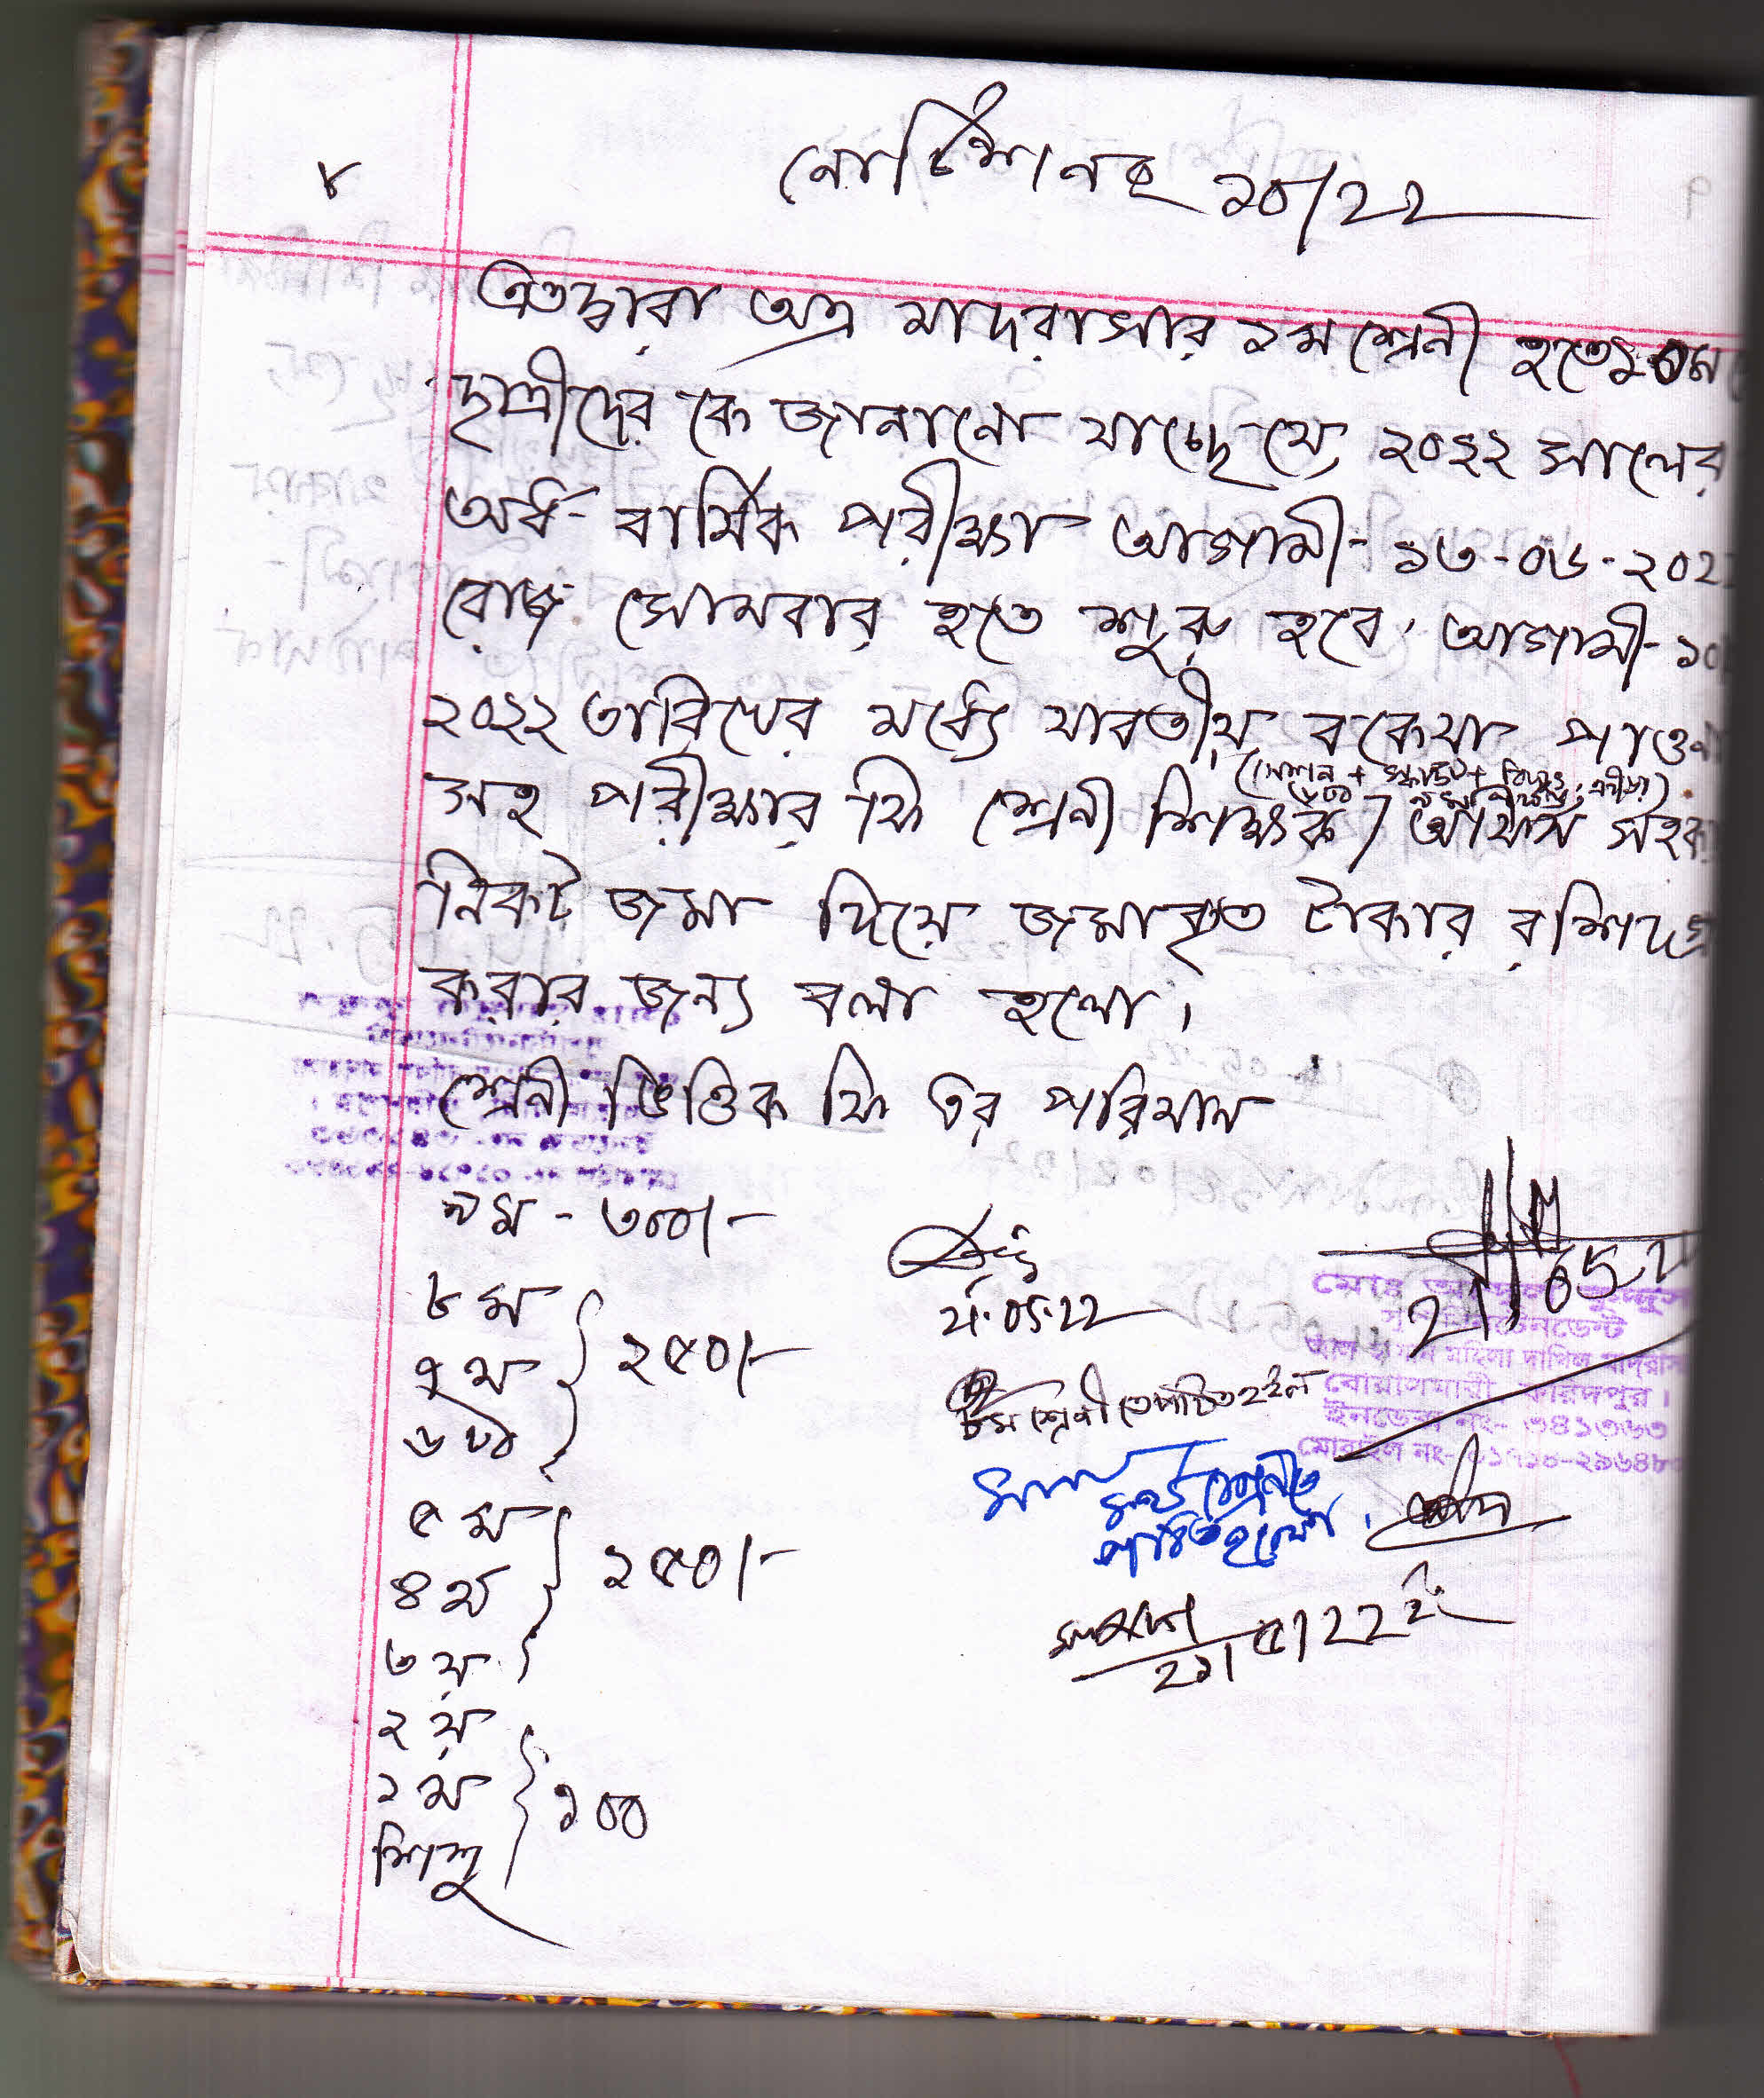 ৮
নোটিশ নং ১০/22
এতদ্বারা অত্র মাদরাসার ১ম শ্রেনী হতে ১০ম
ছাত্রীদের কে জানানো যাচ্ছে যে, ২০২২ সালের
অর্ধ-বার্ষিক পরীক্ষা আগামী- ১৩-০৬-২০2
রোজ সোমবার হতে শুরু হবে। আগামী- ১০
২০২২ তারিখের মধ্যে যাবতীয় বকেয়া পাওনা
(সেশন +
সহ পরীক্ষার ফি শ্রেনী শিক্ষক / অফিস সহকা
নিকট জমা দিয়ে জমাকৃত টাকার রশিদ
করার জন্য বলা হলো।
শ্রেনী ভিত্তিক ফি এর পরিমান
৯ম - ৩০০/-
৮ম
৭ম } ২৫০/-
৬ষ্ঠ
৫ম
৪র্থ } ২৫০/-
৩য়
২য়
১ম } ১০০
শিশু
05.22
৮ম শ্রেনীতে পঠিত হইল
শ্রেনীতে
পঠিত হলো।
২১/৫/22
সুপারিনটেনডেন্ট
মহিলা দাখিল মাদ্রাসা
বোয়ালমারী, ফরিদপুর।
ইনডেক্স নং- ৩৪১৩৬৩
মোবাইল নং-